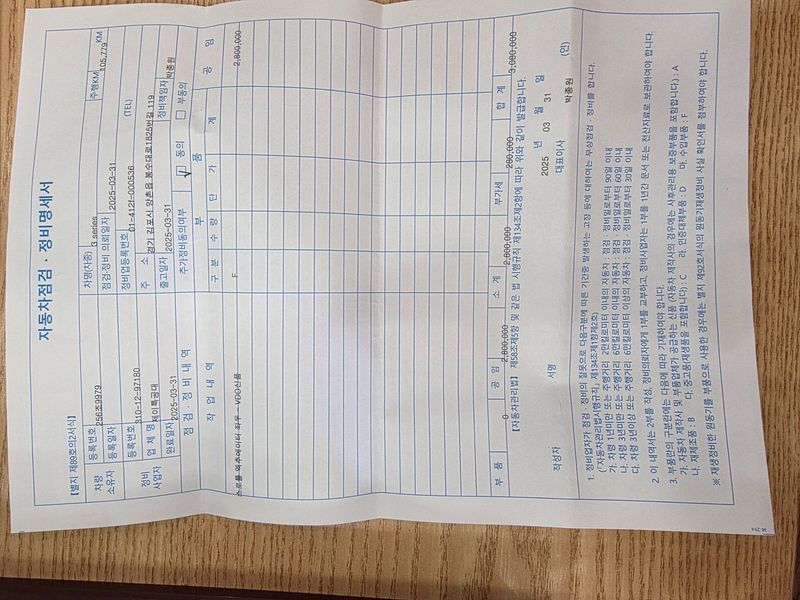 자동차점검 · 정비명세서
【별지 제89호의2서식】
차량 등록번호 256조9979 차명(차종) 3 series 주행KM 105,779 KM
소유자 등록일자 점검·정비 의뢰일자 2025-03-31
정비 사업자 등록번호 310-12-97180 정비업등록번호 01-4121-000536 (TEL)
업 체 명 제이특공대 주 소 경기 김포시 양촌읍 봉수대로1825번길 119
완료일자 2025-03-31 출고일자 2025-03-31 정비책임자 박종원
점 검 · 정 비 내 역 추가정비동의여부 ☑ 동의 ☐ 부동의
작 업 내 역 부 품 공 임
구 분 수 량 단 가 계
스로틀 엑츄에이터 좌우 - VDO신품 F 2,800,000
부 품 0 공 임 2,800,000 소 계 2,800,000 부가세 280,000 합 계 3,080,000
【자동차관리법】 제58조제5항 및 같은 법 시행규칙 제134조제2항에 따라 위와 같이 발급합니다.
2025 년 03 월 31 일
작성자 서명 대표이사 박종원 (인)
1. 정비업자가 점검 · 정비의 잘못으로 다음구분에 따른 기간중 발생하는 고장 등에 대하여는 무상점검 · 정비를 합니다.
(「자동차관리법시행규칙」 제134조제1항제2호)
가. 차령 1년미만 또는 주행거리 2만킬로미터 이내의 자동차 : 점검 · 정비일로부터 90일 이내
나. 차령 3년미만 또는 주행거리 6만킬로미터 이내의 자동차 : 점검 · 정비일로부터 60일 이내
다. 차령 3년이상 또는 주행거리 6만킬로미터 이상의 자동차 : 점검 · 정비일로부터 30일 이내
2. 이 내역서는 2부를 작성, 정비의뢰자에게 1부를 교부하고, 정비사업자는 1부를 1년간 문서 또는 전산자료로 보관하여야 합니다.
3. 부품란의 구분란에는 다음에 따라 기재하여야 합니다.
가. 자동차 제작사 및 부품업체가 공급하는 신품 (자동차 제작사의 경우에는 사후관리용 보증부품을 포함합니다) : A
나. 재제조품 : B 다. 중고품(재생품을 포함합니다) : C 라. 인증대체부품 : D 마. 수입부품 : F
※ 재생정비한 원동기를 부품으로 사용한 경우에는 별지 제92호서식의 원동기재생정비 사실 확인서를 첨부하여야 합니다.